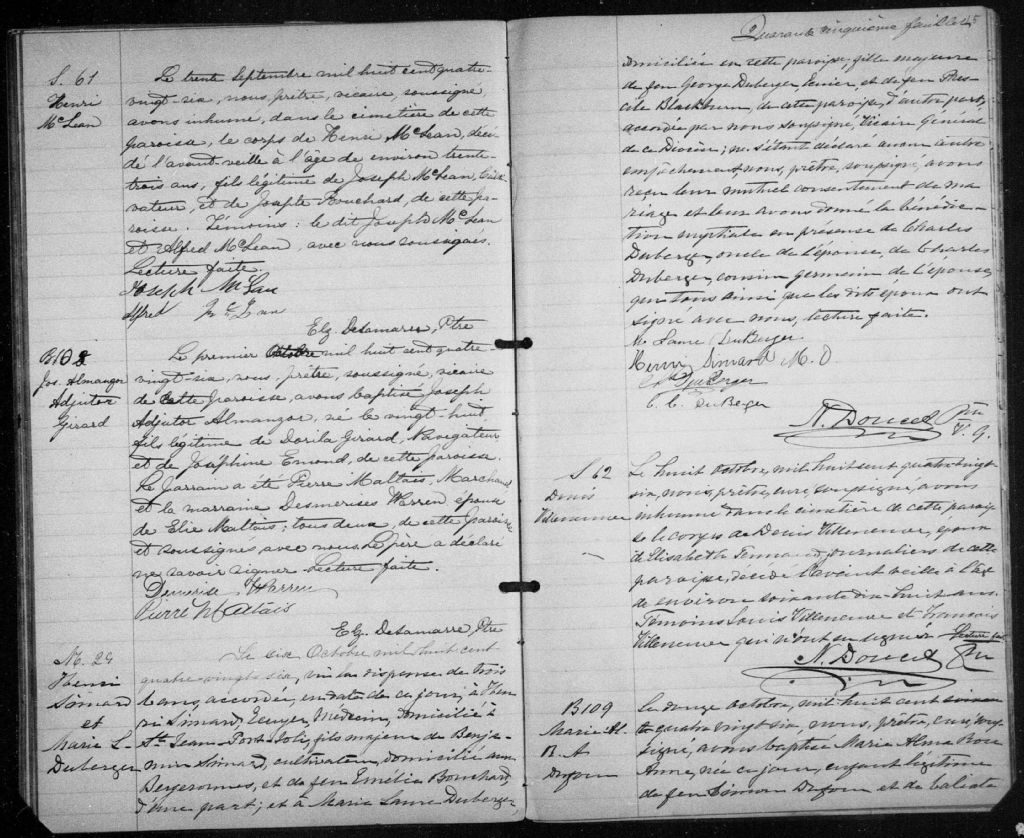 S. 61
Henri
McLean
Le trente Septembre mil huit cent quatre-
vingt-six, nous, prêtre, vicaire, soussigné
avons inhumé, dans le cimetière de cette
paroisse, le corps de Henri McLean, décé-
dé l'avant-veille à l'âge de environ trente-
trois ans, fils légitime de Joseph McLean,
vateur, et de Josepte Bouchard, de cette pa-
roisse. Témoins: le dit Joseph McLean
et Alfred McLean, avec nous soussignés.
Lecture faite.
Joseph McLean
Alfred
Elz. DeLamarre, Ptre
B108
Jos. Almangor
Adjutor
Girard
Le premier Octobre mil huit cent quatre-
vingt-six, nous, prêtre, soussigné, vicaire
de cette paroisse, avons baptisé Joseph
Adjutor Almangor, né le vingt-huit,
fils légitime de Dorila Girard, Navigateur
et de Joséphine Emond, de cette paroisse.
Le parrain a été Pierre Maltais, Marchand
et la marraine Desmerises Warren épouse
de Elie Maltais; tous deux de cette paroisse
et soussignés avec nous. Le père a déclaré
ne savoir signer. Lecture faite.
Demerise Warren
Pierre Maltais
Elz. DeLamarre, Ptre
M. 29
Henri
Simard
et
Marie L.
Duberger
Le six Octobre mil huit cent
quatre-vingt-six, vu la dispense de trois
bans, accordée, en date de ce jour, à Hen-
ri Simard, Ecuyer, Medecin, domicilié à
St. Jean-Port-Joli, fils majeur de Benja-
min Simard, cultivateur, domicilié aux
et de feu Emélie Bouchard,
d'une part; et à Marie Laure Duberger,
Quarante cinquième feuillet 45
domiciliée en cette paroisse, fille majeure
de feu George Duberger Ecuier, et de feu Pris-
cile Blackburn, de cette paroisse, d'autre part,
accordée par nous soussigné, Vicaire Général
de ce Diocèse; ne s'étant déclaré aucun autre
empêchement, nous, prêtre, soussigné, avons
reçu leur mutuel consentement de ma-
riage et leur avons donné la bénédic-
tion nuptiale en présence de Charles
Duberger, oncle de l'épouse, de Charles
Duberger, cousin germain de l'épouse,
qui tous ainsi que les dits époux ont
signé avec nous, lecture faite.
M. Laure DuBerger
Henri Simard M. D
DuBerger
C. C. DuBerger
N. Doucet Ptre
V. G.
S 62
Denis
Villeneuve
Le huit octobre, mil huit cent quatre vingt
six, nous, prêtre, curé, soussigné, avons
inhumé dans le cimetière de cette parois-
se le corps de Denis Villeneuve, époux
d'Elisabeth journaliers de cette
paroisse, décédé l'avant veille à l'âge
de environ soixante dix-huit ans.
Témoins Louis Villeneuve et François
Villeneuve qui n'ont su signer. Lecture faite
N. Doucet Ptre
B109
Marie Al.
B. A
Dufour
Le douze octobre, mil huit cent
quatre vingt six, nous, prêtre, curé, sous-
signé, avons baptisé Marie Alma Bonne
Anne, née ce jour, enfant légitime
de feu Simon Dufour et de